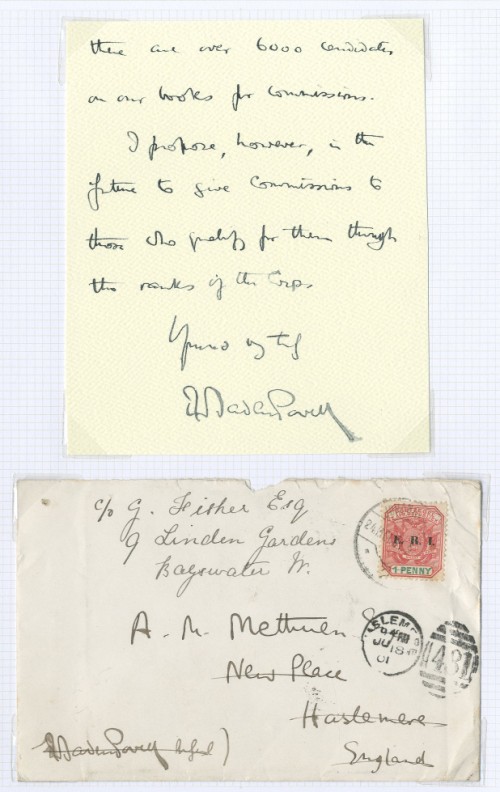 there are over 6000 candidates
on our books for Commissions.
I propose, however, in the
future to give Commissions to
those who qualify for them through
the ranks of the Corps
Yours vy try
Baden Powell
c/o G. Fisher Esq
9 Linden Gardens
Bayswater W.
E.R.I.
1 PENNY
A. M. Methuen
New Place
Haslemere
England
HASLEMERE
JU 18
01
481
Baden Powell